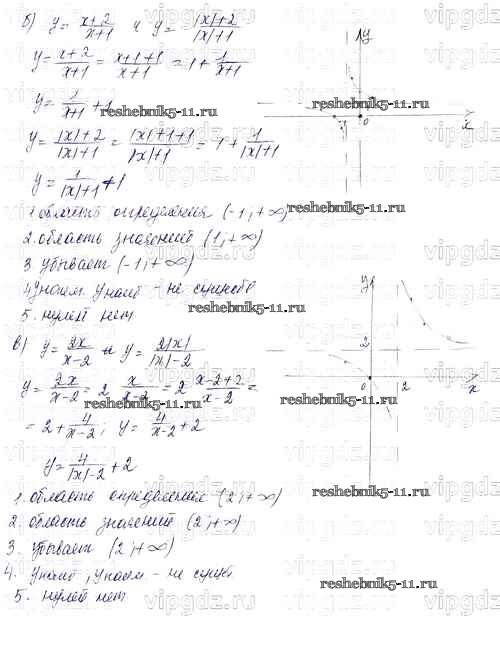 б) y = x+2/x+1 и y = |x|+2/|x|+1
y = x+2/x+1 = x+1+1/x+1 = 1 + 1/x+1
y = 1/x+1 + 1
y = |x|+2/|x|+1 = |x|+1+1/|x|+1 = 1 + 1/|x|+1
y = 1/|x|+1 + 1
1. область определения (-1; +∞)
2. область значений (1; +∞)
3 убывает (-1; +∞)
4 y наим. y наиб - не сущ
5. нулей нет
в) y = 2x/x-2 и y = 2|x|/|x|-2
y = 2x/x-2 = 2 x/x-2 = 2 x-2+2/x-2 =
= 2 + 4/x-2; y = 4/x-2 + 2
y = 4/|x|-2 + 2
1. область определения (2; +∞)
2. область значений (2; +∞)
3. убывает (2; +∞)
4. y наиб, y наим. - не сущ.
5. нулей нет
y
-1 0 x
y
2
0 2 x
reshebnik5-11.ru
reshebnik5-11.ru
reshebnik5-11.ru
reshebnik5-11.ru
reshebnik5-11.ru
reshebnik5-11.ru
reshebnik5-11.ru
vipgdz.ru